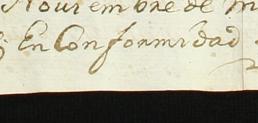 Nouiembre de m
En Conformidad